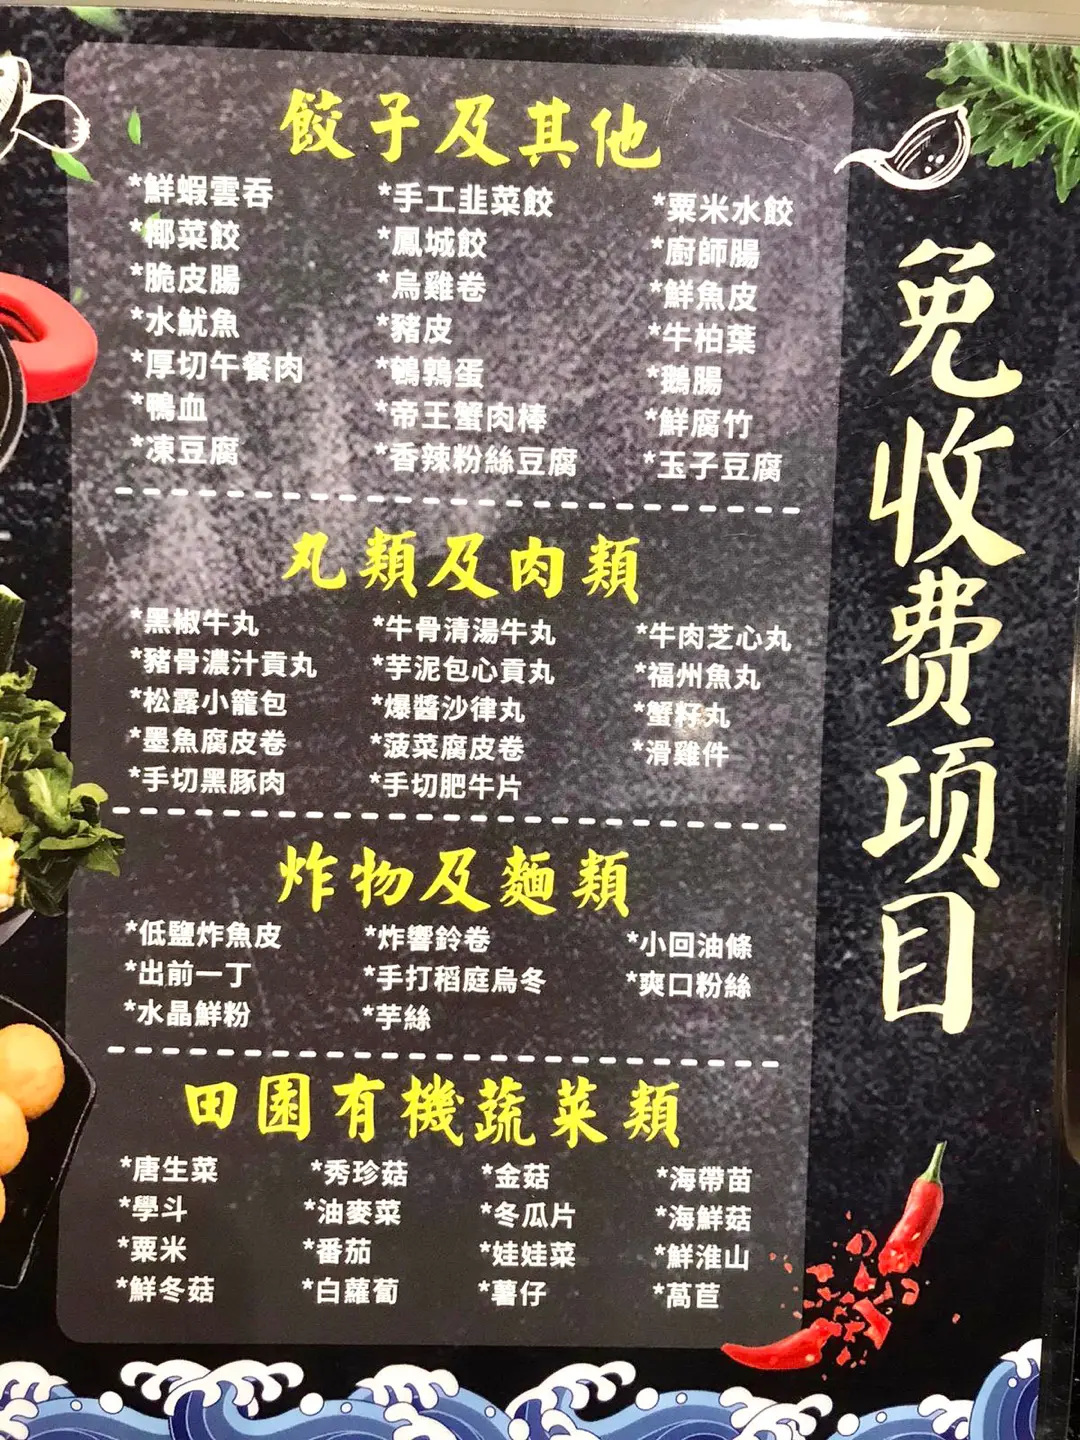 餃子及其他
*鮮蝦雲吞 *手工韭菜餃 *粟米水餃
*椰菜餃 *鳳城餃 *廚師腸
*脆皮腸 *烏雞卷 *鮮魚皮
*水魷魚 *豬皮 *牛柏葉
*厚切午餐肉 *鵪鶉蛋 *鵝腸
*鴨血 *帝王蟹肉棒 *鮮腐竹
*凍豆腐 *香辣粉絲豆腐 *玉子豆腐
丸類及肉類
*黑椒牛丸 *牛骨清湯牛丸 *牛肉芝心丸
*豬骨濃汁貢丸 *芋泥包心貢丸 *福州魚丸
*松露小籠包 *爆醬沙律丸 *蟹籽丸
*墨魚腐皮卷 *菠菜腐皮卷 *滑雞件
*手切黑豚肉 *手切肥牛片
炸物及麵類
*低鹽炸魚皮 *炸響鈴卷 *小回油條
*出前一丁 *手打稻庭烏冬 *爽口粉絲
*水晶鮮粉 *芋絲
田園有機蔬菜類
*唐生菜 *秀珍菇 *金菇 *海帶苗
*學斗 *油麥菜 *冬瓜片 *海鮮菇
*粟米 *番茄 *娃娃菜 *鮮淮山
*鮮冬菇 *白蘿蔔 *薯仔 *萵苣
免收费项目